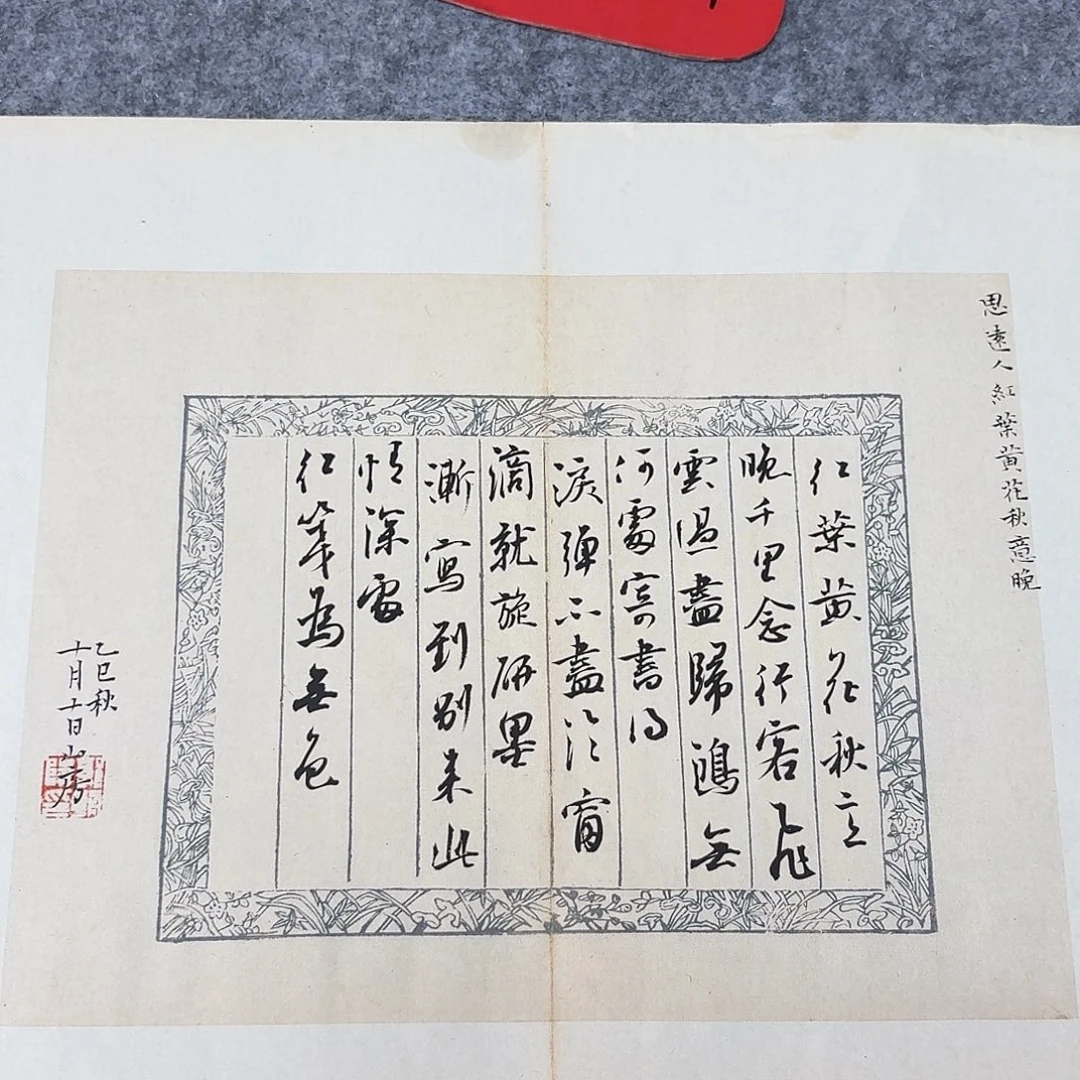 思遠人紅葉黄花秋意晚
红葉黄花秋意
晚千里念行客飛
雲過盡歸鴻無
何處寄書得
淚彈不盡臨窗
滴就旋研墨
漸寫到別来此
情深處
红箋為無色
乙巳秋
十月十日山房